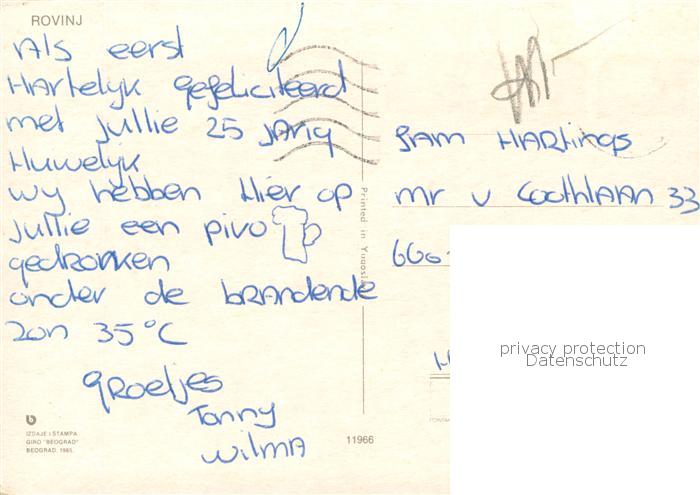 ROVINJ
Als eerst
Hartelijk gefeliciteerd
met jullie 25 jarig
Huwelijk
wij hebben Hier op
jullie een pivo
gedronken
onder de brandende
zon 35°C
groetjes
Tonny
Wilma
IZDAJE I ŠTAMPA
GIRO "BEOGRAD"
BEOGRAD. 1985.
11966
Printed in Yugosla
Fam Hartings
mr v Coothlaan 33
660
H
privacy protection
Datenschutz